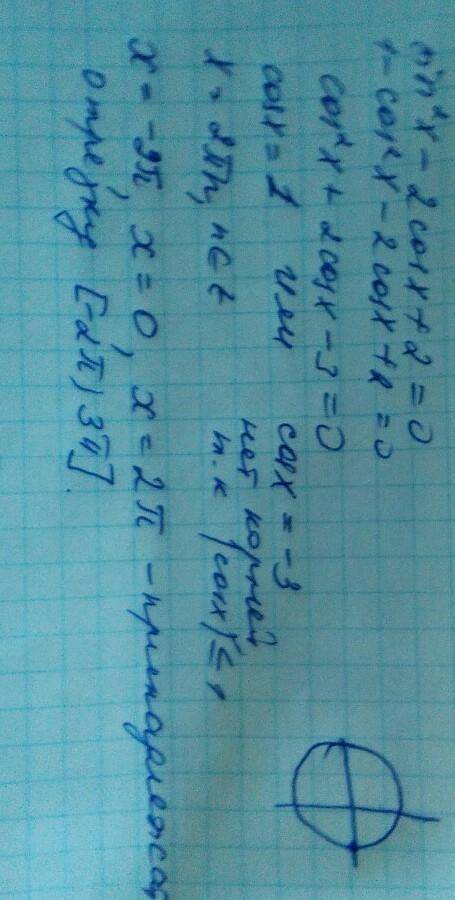 sin²x - 2cosx + 2 = 0
1 - cos²x - 2cosx + 2 = 0
cos²x + 2cosx - 3 = 0
cosx = 1 или cosx = -3
x = 2πn, n ∈ z нет корней
т.к |cosx| ≤ 1
x = -2π, x = 0, x = 2π - принадлежат
отрезку [-2π; 3π].